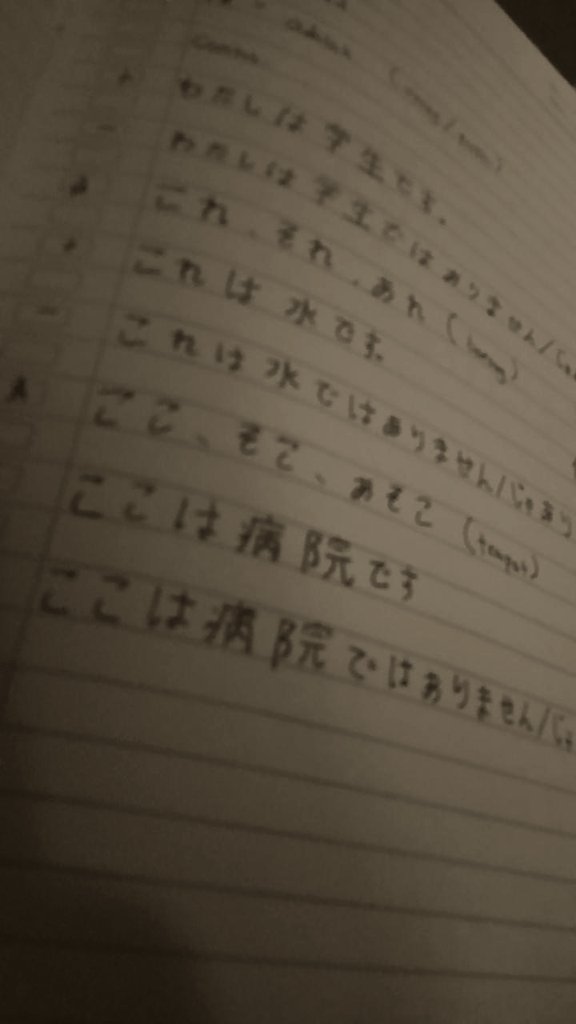 わたしは学生です。
わたしは学生ではありません/じゃ
これ、それ、あれ (
これは水です。
これは水ではありません/じゃあり
ここ、そこ、あそこ (tempat)
ここは病院です
ここは病院ではありません/じゃ